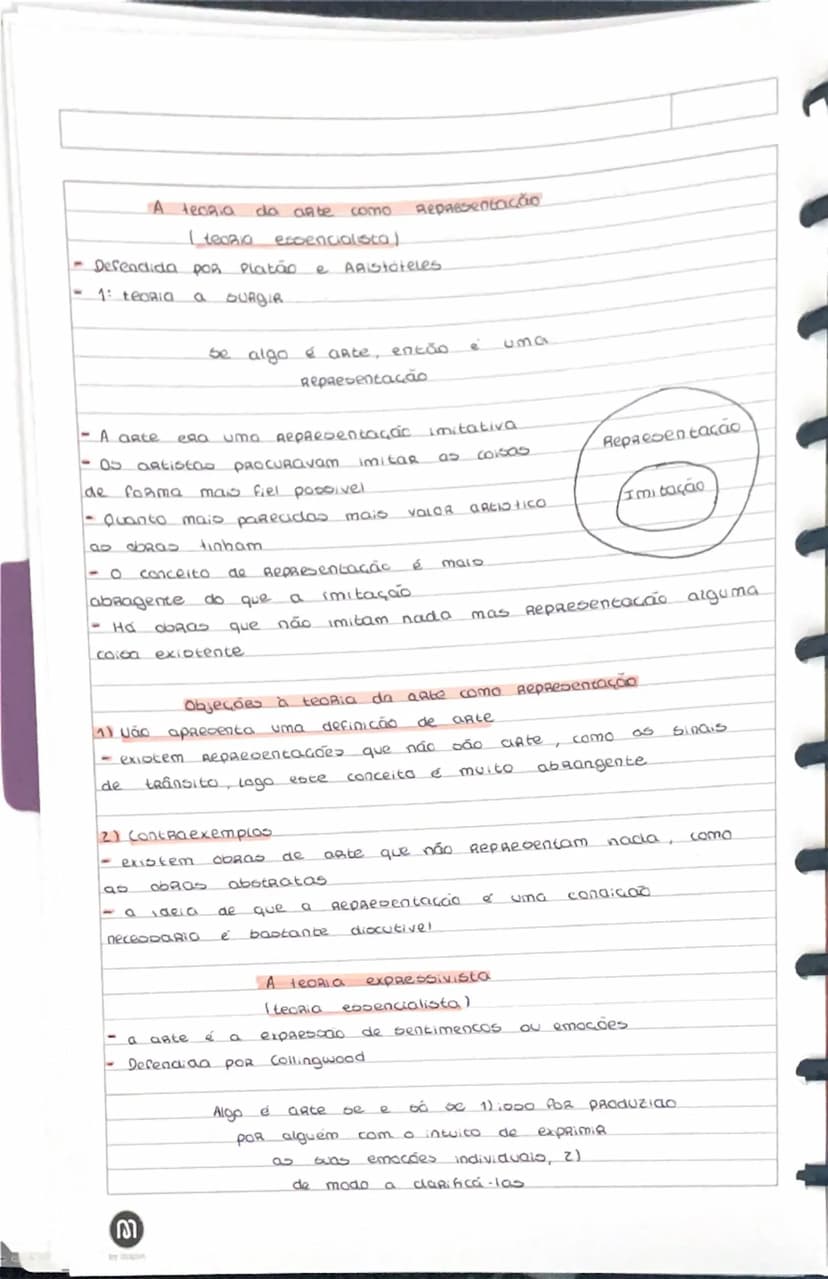 A teoria da arte como Representação
(teoria essencialista)
- Defendida por Platão e Aristóteles
- 1ª teoria a surgir
Se algo é arte, então é uma
Representação
- A arte era uma representação imitativa
- Os artistas procuravam imitar as coisas
de forma mais fiel possivel
- Quanto mais parecidas mais valor artistico
as obras tinham
- O conceito de Representação é mais
abragente do que a imitação
- Há obras que não imitam nada mas representacão alguma
coisa existente
Representação
Imitação
Objeções à teoria da arte como Representação
1) Não apresenta uma definição de arte
- existem representações que não são arte, como os sinais
de trânsito, logo este conceito é muito abrangente
2) Contraexemplos
- existem obras de arte que não representam nada, como
as obras abstratas
- a ideia de que a representação é uma condição
necessario é bastante discutivel
A teoria expressivista
(teoria essencialista)
- a arte é a expressão de sentimentos ou emoções
- Defendida por Collingwood
Algo é arte se e só se 1) isso for produzido
por alguém com o intuito de exprimir
as suas emoções individuais, 2)
de modo a clarificá-las